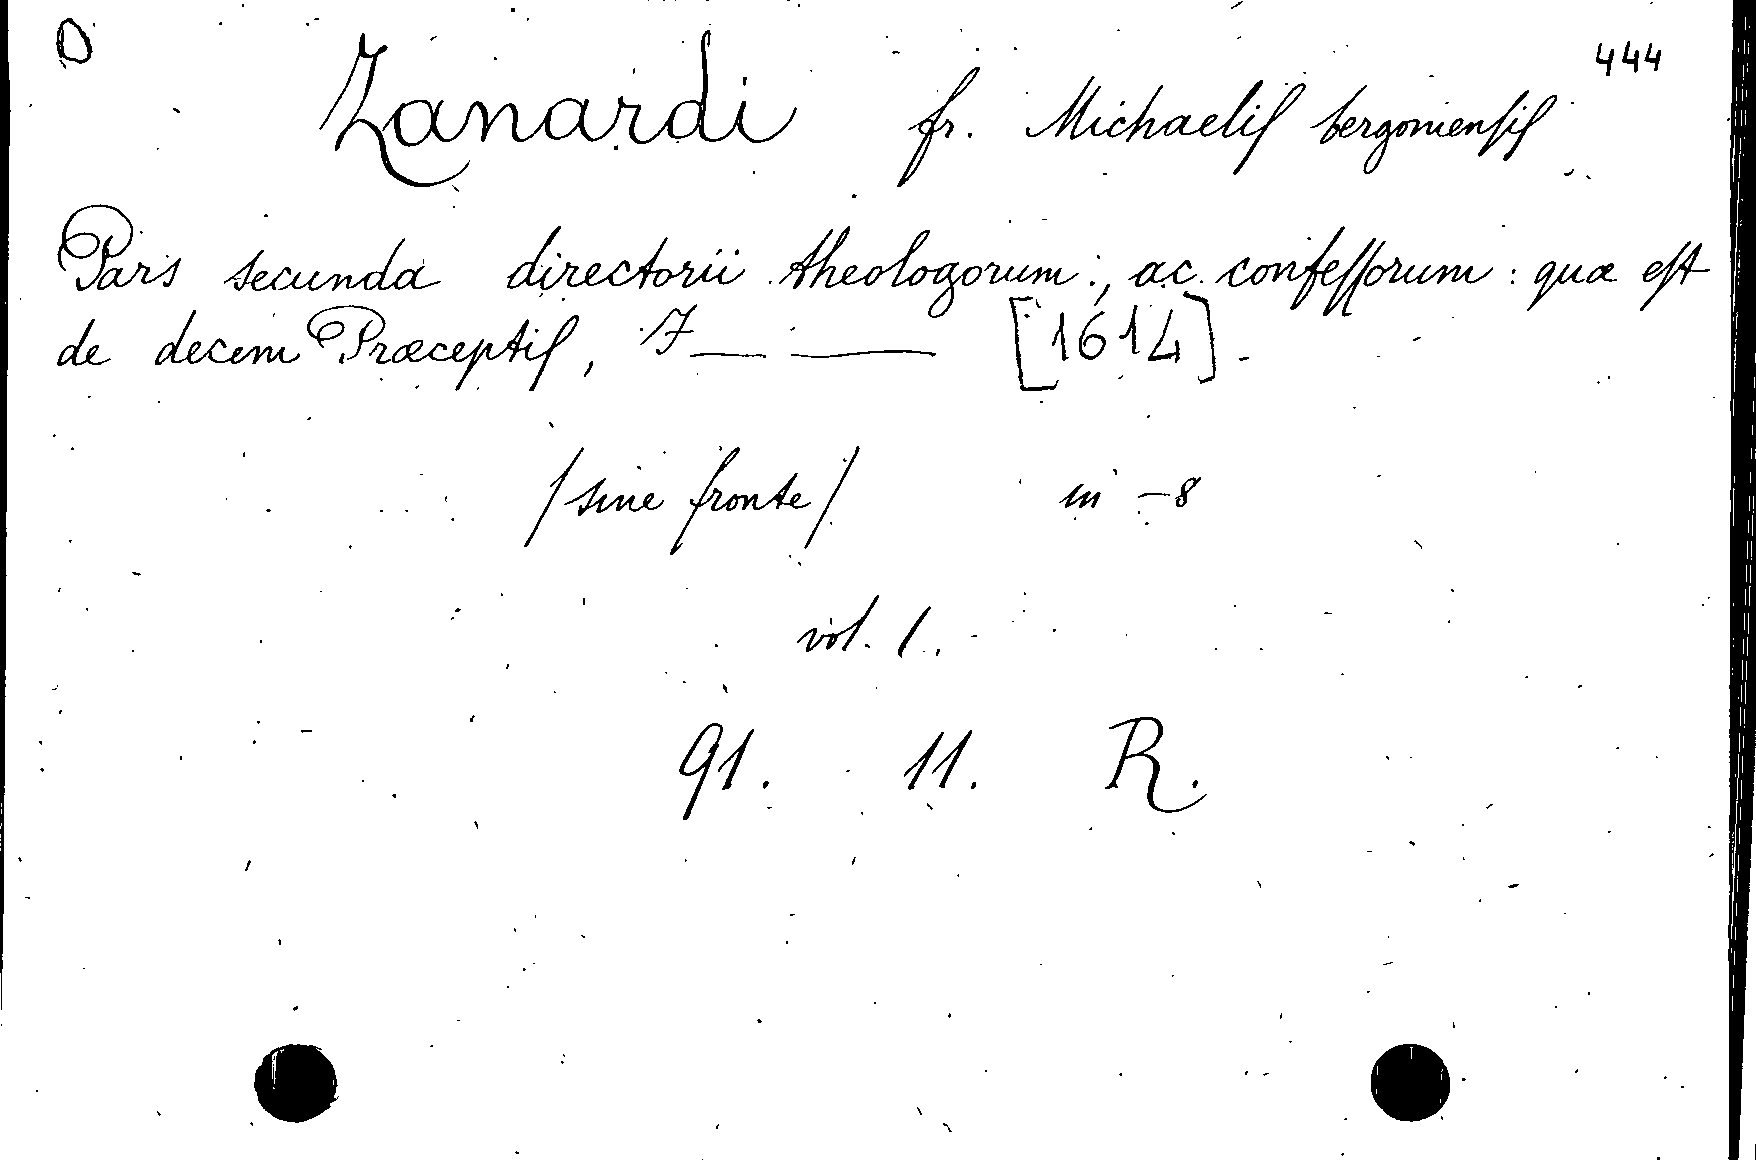 D
444
Zanardi fr. Michaeliſ bergomenſiſ
Pars secunda directorii theologorum, ac confeſſorum: quæ eſt
de decem Præceptiſ, I—— —— [1614].
/sine fronte/ in -8
vol. 1.
91. 11. R.